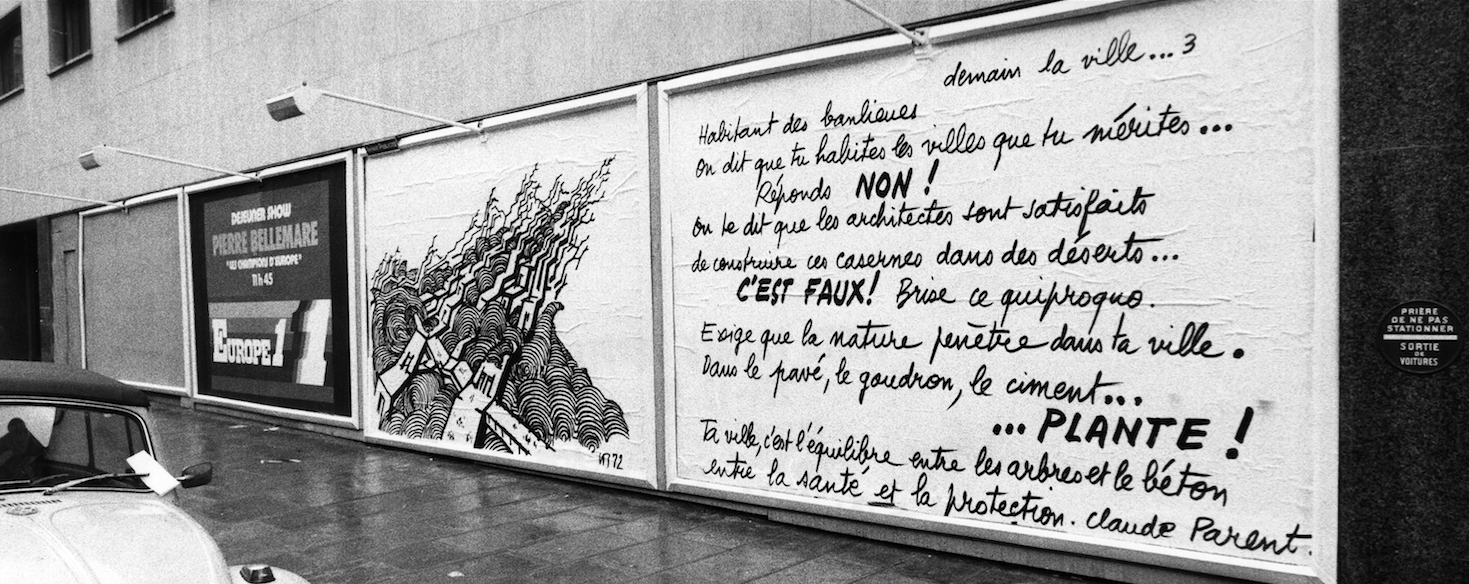 DEJEUNER SHOW
PIERRE BELLEMARE
"LES CHAMPIONS D'EUROPE"
11h45
EUROPE 1
72
demain la ville...3
Habitant des banlieues
On dit que tu habites les villes que tu mérites...
Réponds NON !
On te dit que les architectes sont satisfaits
de construire ces casernes dans des déserts...
C'EST FAUX! Brise ce quiproquo.
Exige que la nature penètre dans ta ville.
Dans le pavé, le goudron, le ciment...
... PLANTE !
Ta ville, c'est l'équilibre entre les arbres et le béton
entre la santé et la protection. Claude Parent.
PRIÈRE
DE NE PAS
STATIONNER
SORTIE
DE
VOITURES